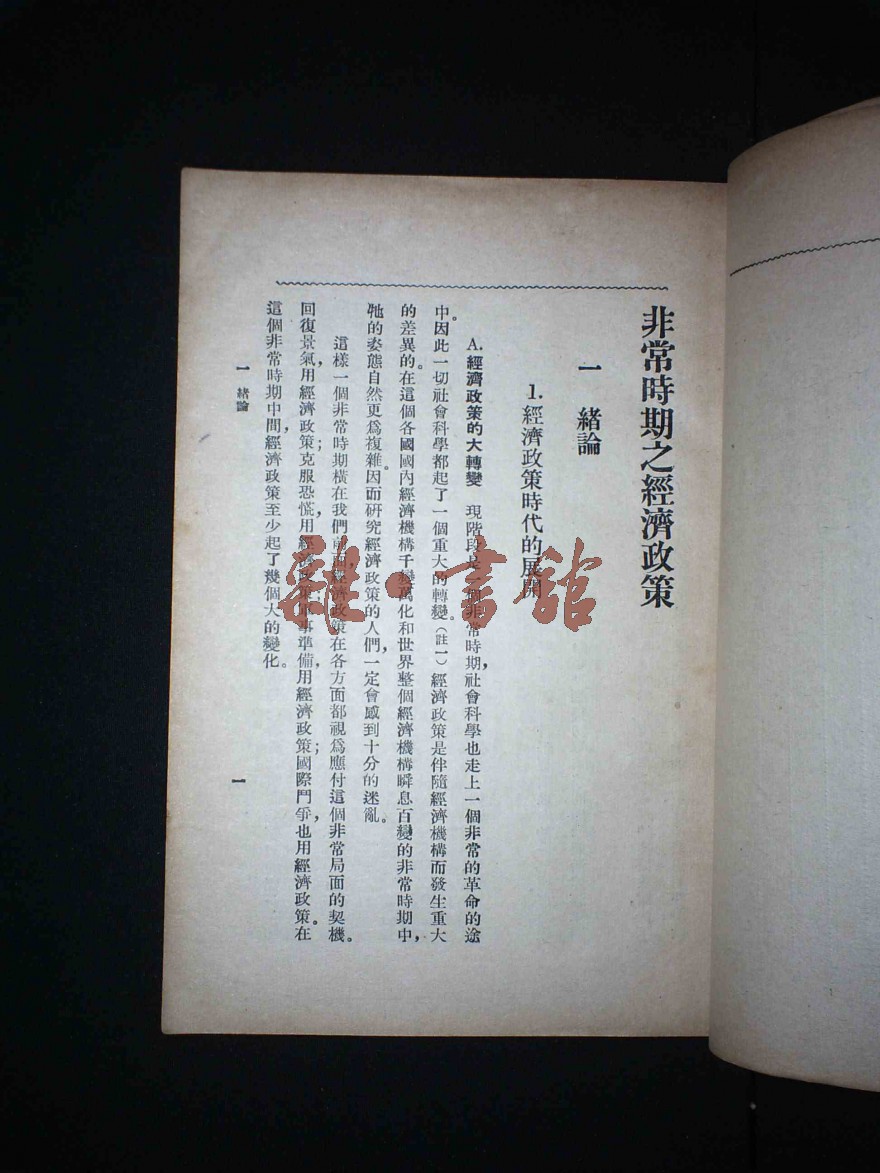 非常時期之經濟政策
一 緒論
1. 經濟政策時代的展開
A. 經濟政策的大轉變 現階段是 非常時期,社會科學也走上一個非常的革命的途
中。因此一切社會科學都起了一個重大的轉變。(註一)經濟政策是伴隨經濟機構而發生重大
的差異的。在這個各國國內經濟機構千變萬化和世界整個經濟機構瞬息百變的非常時期中,
牠的姿態自然更爲複雜。因而研究經濟政策的人們,一定會感到十分的迷亂。
這樣一個非常時期橫在我們前面,經濟政策在各方面都視爲應付這個非常局面的契機。
回復景氣,用經濟政策;克服恐慌,用經濟政策; 事準備,用經濟政策;國際鬥爭,也用經濟政策。在
這個非常時期中間,經濟政策至少起了幾個大的變化。
一 緒論
一
雜·書館